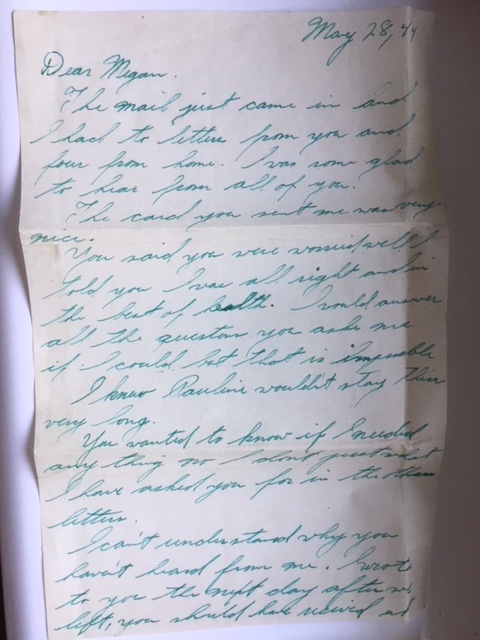 May 28, 44
Dear Megan.
The mail just came in and
I had to letters from you and
four from home. I was some glad
to hear from all of you.
The card you sent me was very
nice.
You said you were worried well I
told you I was all right and in
the best of health. I would answer
all the queston you aske me
if I could but that is impossible
I knew Pauline wouldn't stay thire
very long.
You wanted to know if I needed
any thing no I don't just what
I have asked you for in the other
letters.
I can't understand why you
haven't heard from me. I wrote
to you the next day after we
left, you should have recived